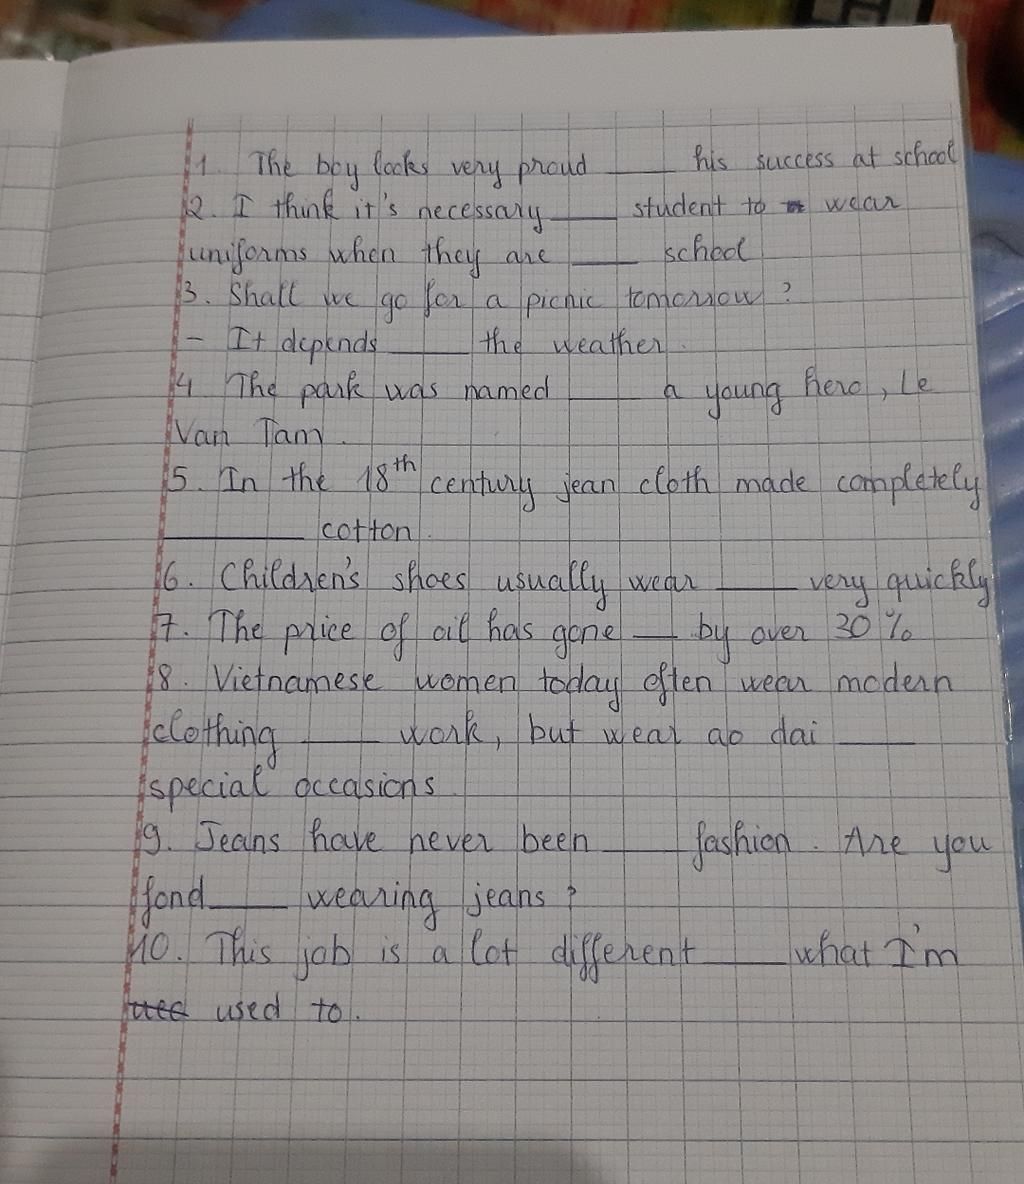 1. The boy looks very proud ____ his success at school
2. I think it's necessary ____ student to wear
uniforms when they are ____ school
3. Shall we go for a picnic tomorrow ?
- It depends ____ the weather.
4 The park was named ____ a young hero, Le
Van Tam.
5. In the 18th century jean cloth made completely
____ cotton.
6. Children's shoes usually wear ____ very quickly
7. The price of oil has gone ____ by over 30%
8. Vietnamese women today often wear modern
clothing ____ work, but wear ao dai ____
special occasions.
9. Jeans have never been ____ fashion. Are you
fond ____ wearing jeans ?
10. This job is a lot different ____ what I'm
used to.